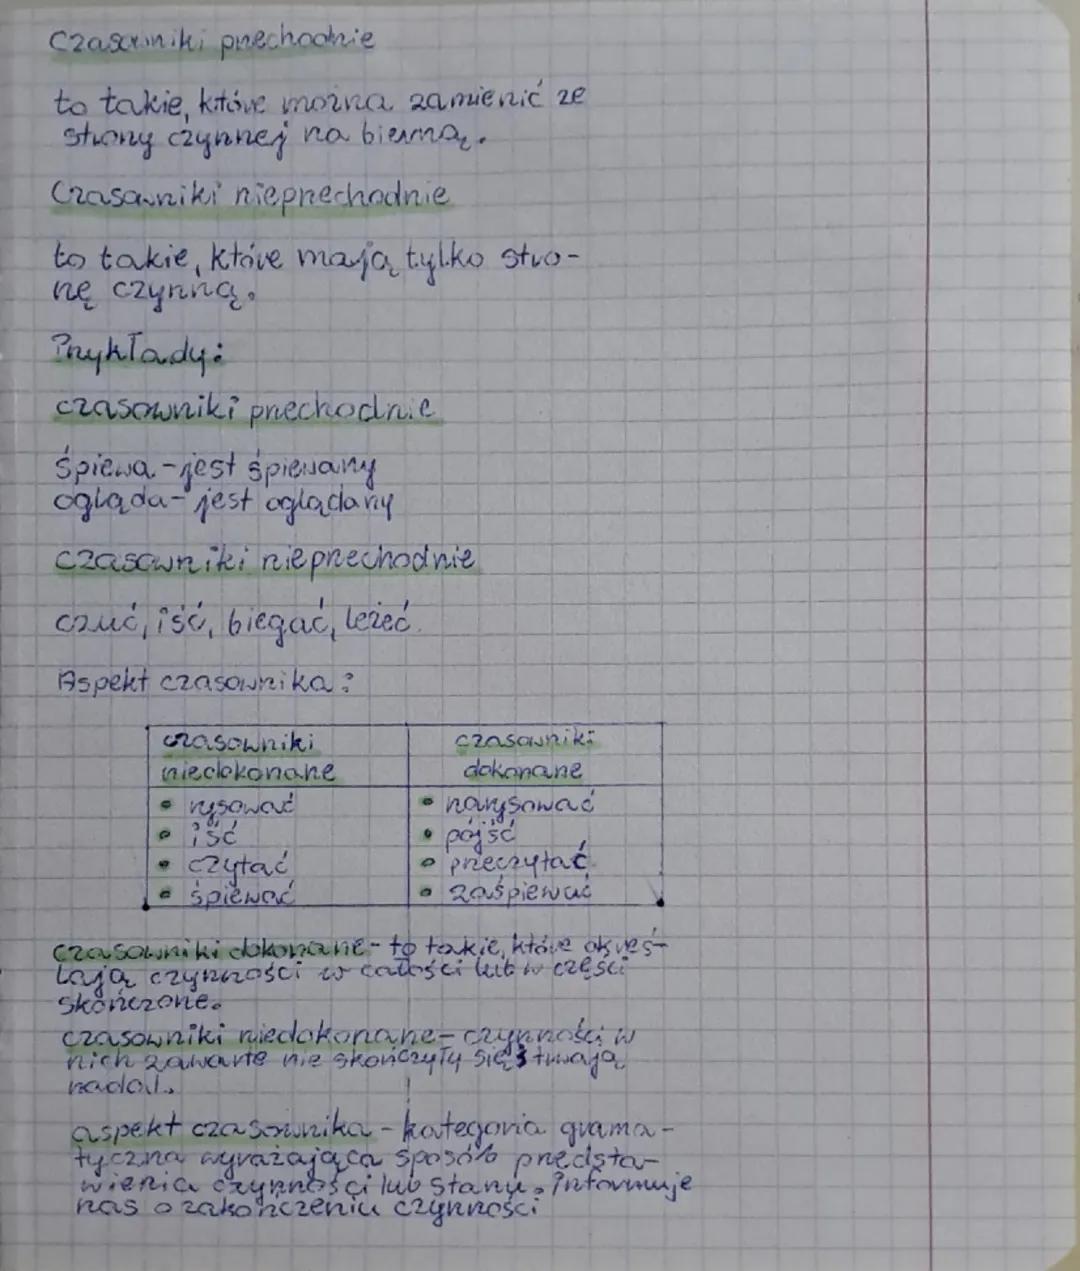 Czasowniki przechodnie
to takie, które można zamienić ze
strony czynnej na bierną.
Czasowniki nieprzechodnie
to takie, które mają tylko stro-
nę czynną.
Przykłady:
czasowniki przechodnie
śpiewa - jest śpiewany
ogląda - jest oglądany
czasowniki nieprzechodnie
czuć, iść, biegać, leżeć.
Aspekt czasownika:
czasowniki niedokonane
czasowniki dokonane
• rysować • narysować
• iść • pójść
• czytać • przeczytać
• śpiewać • zaśpiewać
czasowniki dokonane - to takie, które okreś-
lają czynności w całości lub w części
skończone.
czasowniki niedokonane - czynności w
nich zawarte nie skończyły się i trwają
nadal.
aspekt czasownika - kategoria grama-
tyczna wyrażająca sposób przedsta-
wienia czynności lub stanu. Informuje
nas o zakończeniu czynności